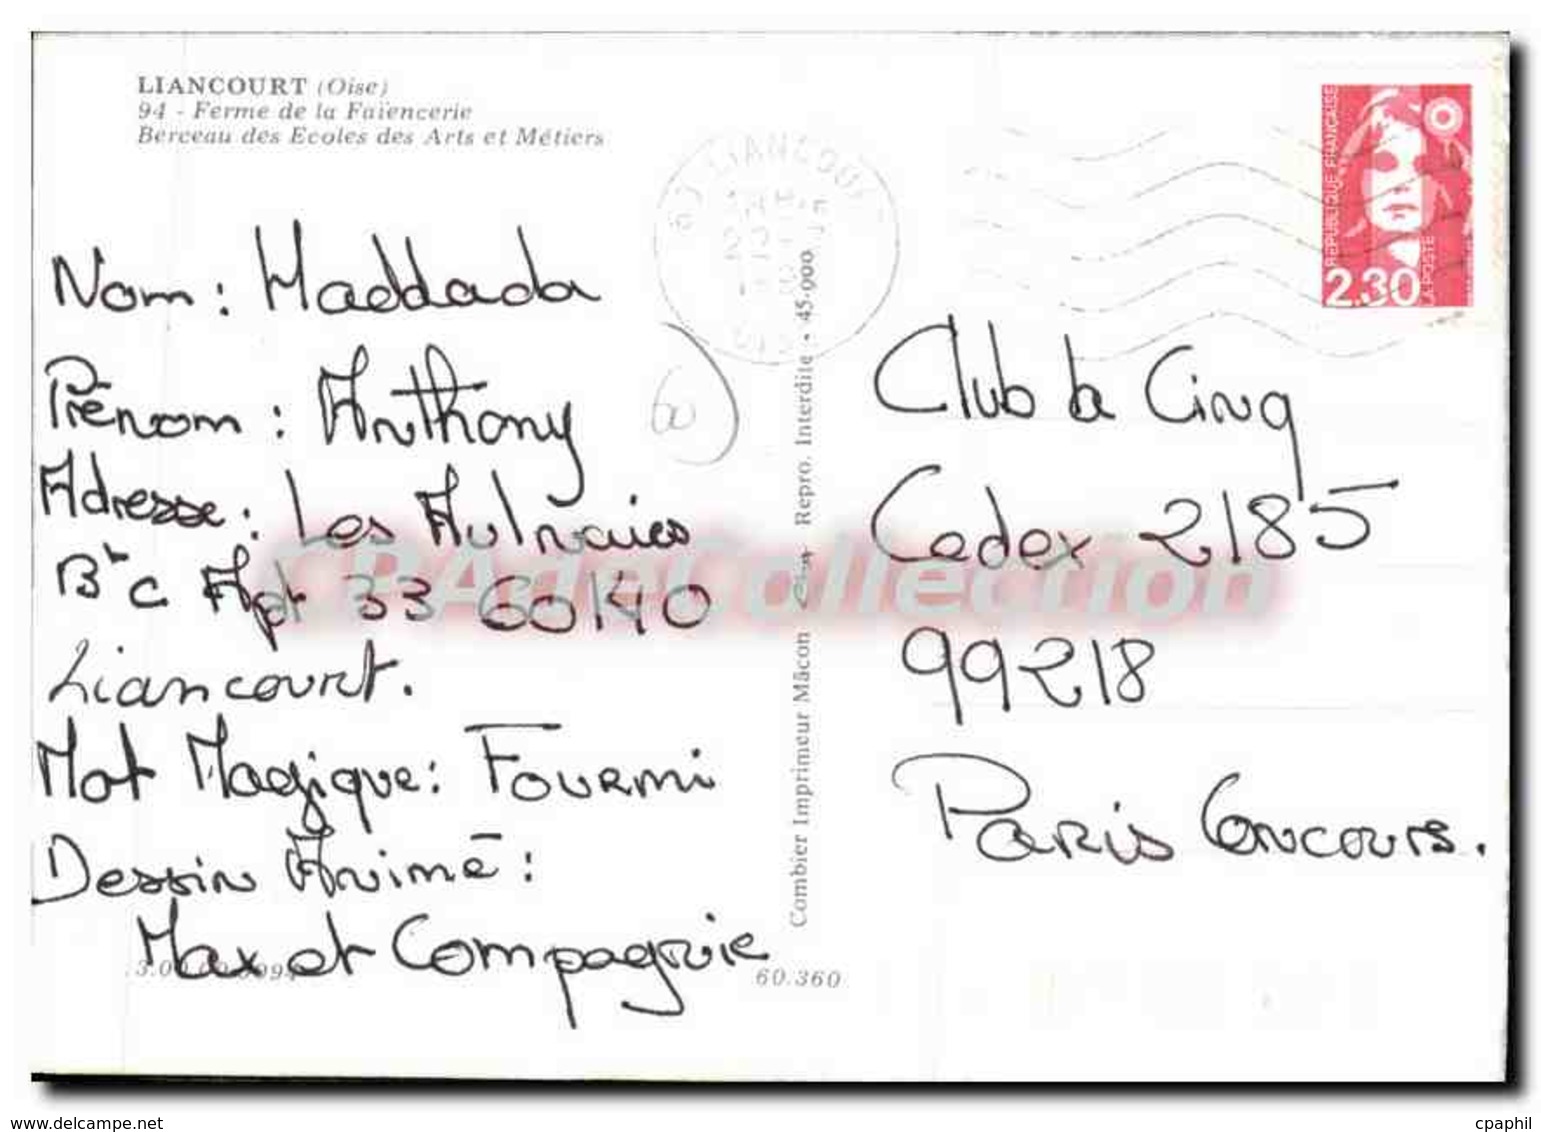 LIANCOURT (Oise)
94 - Ferme de la Faïencerie
Berceau des Ecoles des Arts et Métiers
Nom: Haddada
Prénom: Anthony
Adresse: Les Aulnaies
Bt C Apt 33 60140
Liancourt.
Mot Magique: Fourmi
Dessin Animé:
Max et Compagnie
60
60.360
Combier Imprimeur Mâcon Repro. Interdite • 45-000
60 LIANCOURT
REPUBLIQUE FRANÇAISE
2.30
LA POSTE
Club la Cinq
Cedex 2185
99218
Paris Concours.
CPAdeCollection
www.delcampe.net
cpaphil